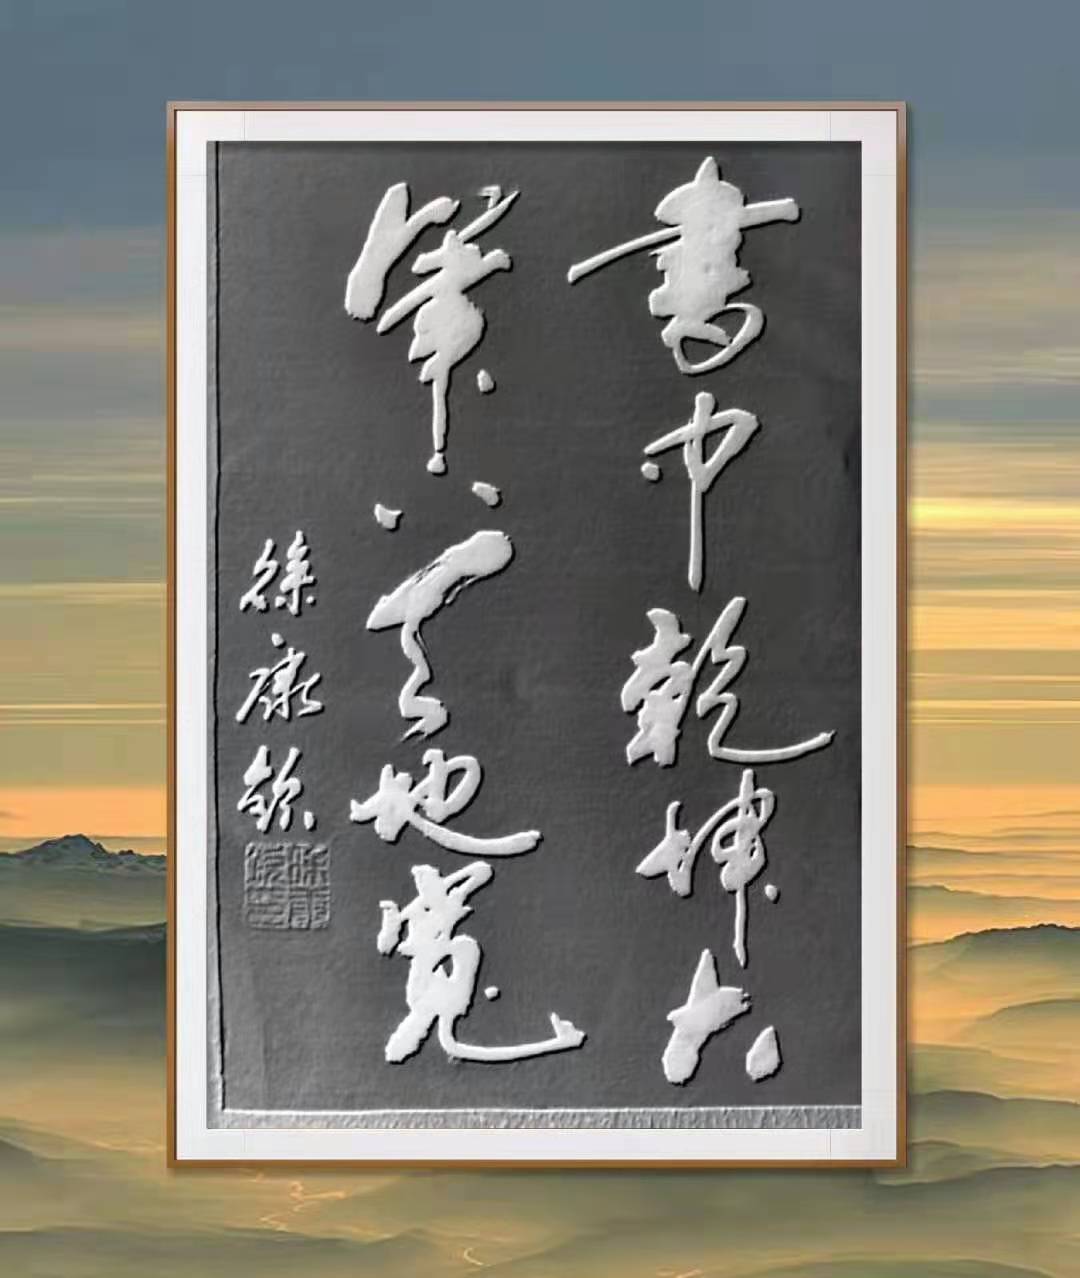 書中乾坤大
筆下天地寬
徐康